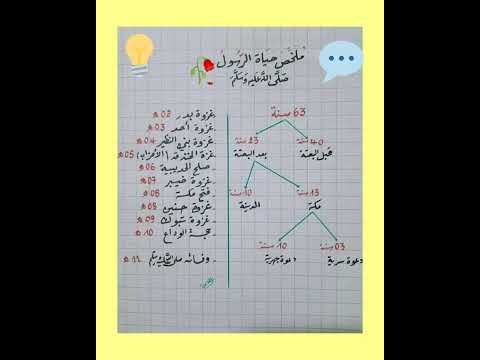 مُلَخَّصُ حَيَاةِ الرَّسُولِ
صَلَّى اللَّهُ عَلَيْهِ وَسَلَّمَ
63 سنة
40 سنة
23 سنة
قبل البعثة
بعد البعثة
13 سنة
10 سنة
مكة
المدينة
03 سنة
10 سنة
دعوة سرية
دعوة جهرية
- غزوة بدر 02 ھ
- غزوة أحد 03 ھ
- غزوة بني النظير 04 ھ
- غزة الخندق (الأحزاب) 05 ھ
- صلح الحديبية 06 ھ
- غزوة خيبر 07 ھ
- فتح مكة 08 ھ
- غزوة حنين 08 ھ
- غزوة تبوك 09 ھ
- حجة الوداع 10 ھ
- وفاته صلى الله عليه وسلم 11 ھ